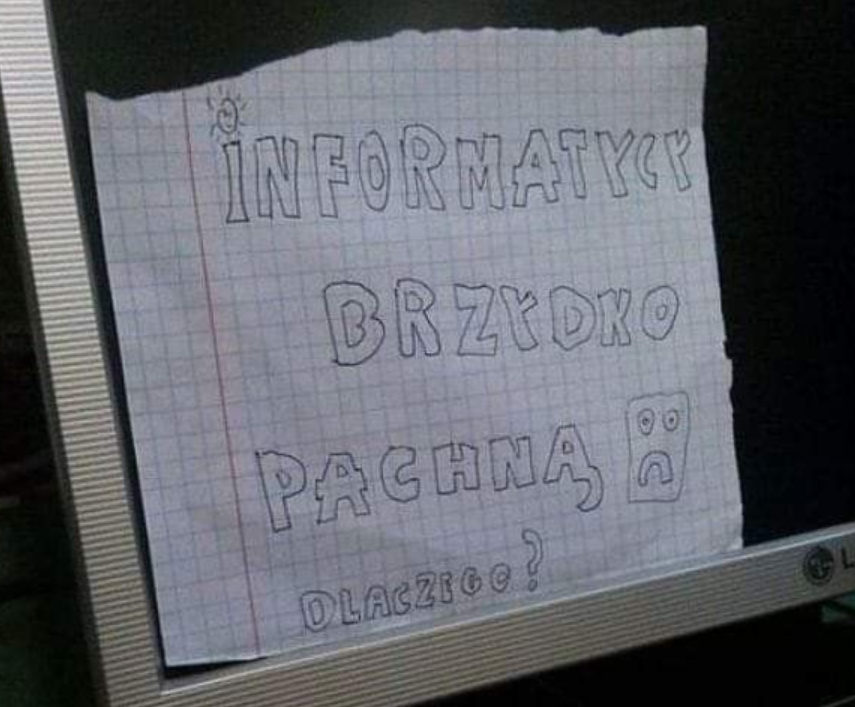 INFORMATYCY
BRZYDKO
PACHNĄ
DLACZEGO?
L